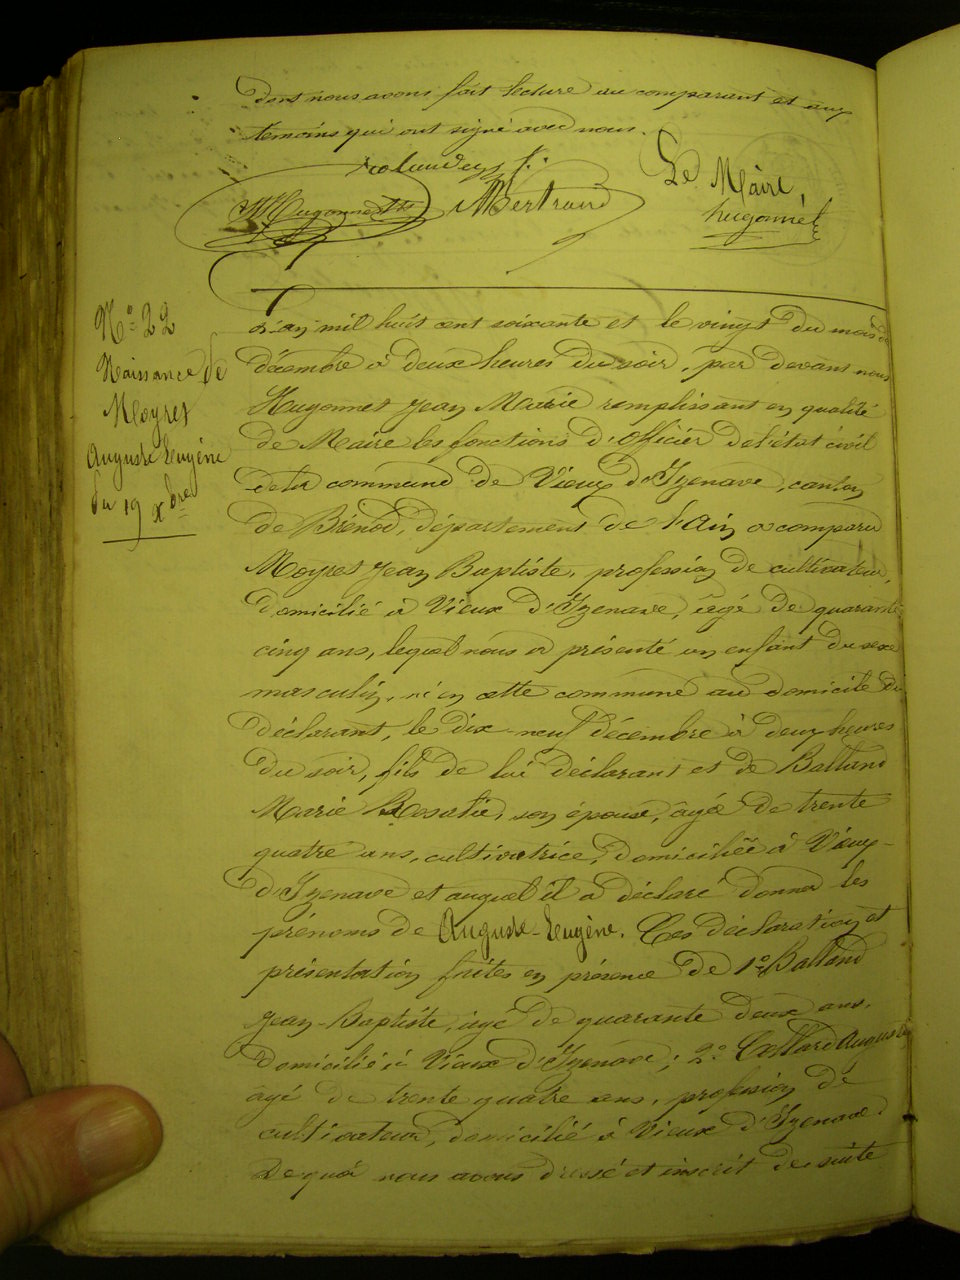 dont nous avons fait lecture au comparant et aux
témoins qui ont signé avec nous.
Le Maire,
Bertrand
hugonnet
N° 22
Naissance de
Moyret
Auguste Eugène
du 19 xbre
L'an mil huit cent soixante et le vingt du mois de
décembre à deux heures du soir, par devant nous
Hugonnet Jean Marie remplissant en qualité
de Maire les fonctions d'officier de l'état civil
de la commune de Vieux d'Izenave, canton
de Brénod, département de l'Ain a comparu
Moyret Jean Baptiste, profession de cultivateur,
domicilié à Vieux d'Izenave, âgé de quarante
cinq ans, lequel nous a présenté un enfant du sexe
masculin, né en cette commune au domicile du
déclarant, le dix-neuf décembre à deux heures
du soir, fils de lui déclarant et de Balland
Marie Rosalie, son épouse, âgée de trente
quatre ans, cultivatrice, domiciliée à Vieux-
d'Izenave et auquel il a déclaré donner les
prénoms de Auguste-Eugène. Ces déclaration et
présentation faites en présence de 1° Balland
Jean-Baptiste, âgé de quarante deux ans,
domicilié à Vieux d'Izenave; 2° Collard Auguste
âgé de trente quatre ans, profession de
cultivateur, domicilié à Vieux d'Izenave.
De quoi nous avons dressé et inscrit de suite